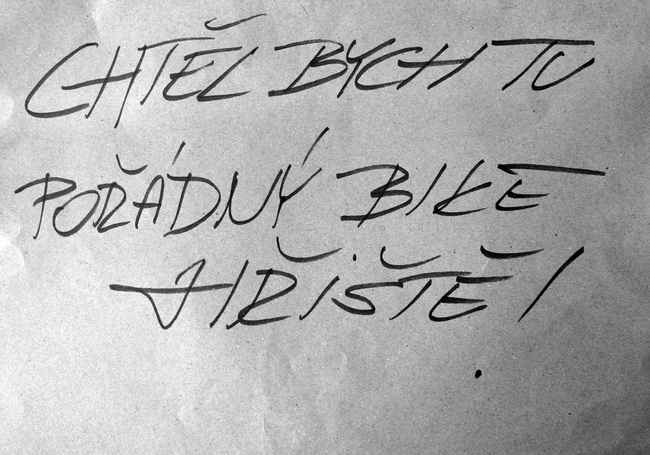 CHTĚL BYCH TU
POŘÁDNÝ BIKE
HŘIŠTĚ!